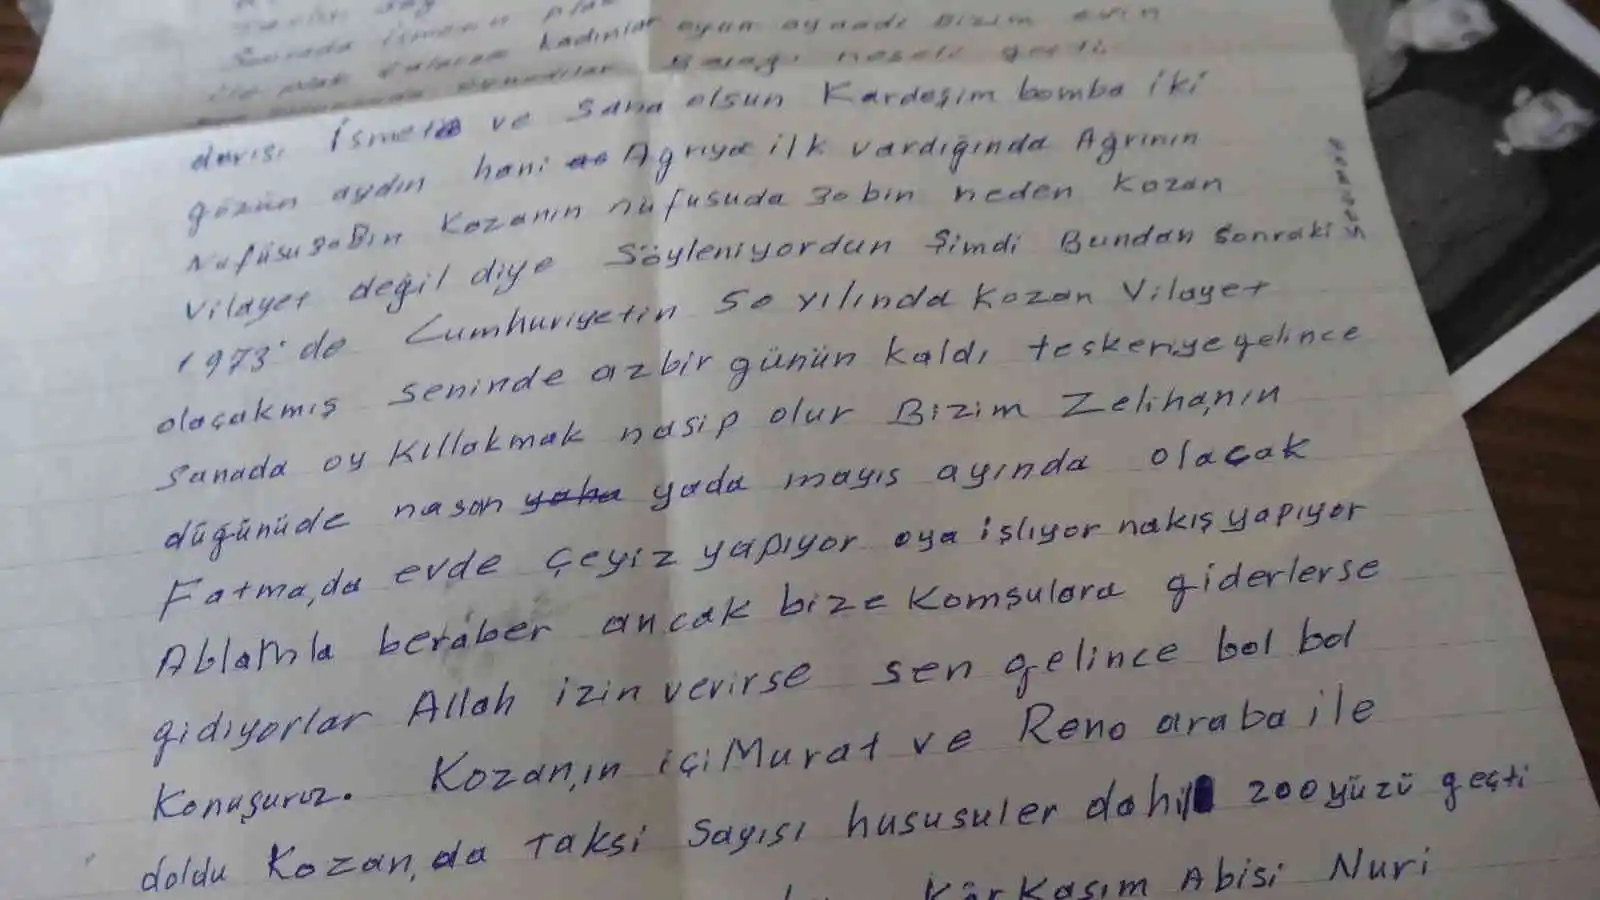 Sonrada
kadınlar oyun oynadı Bizim evin
neşeli geçti.
darısı İsmete ve Sana olsun Kardeşim bomba iki
gözün aydın hani Ağrıya ilk vardığında Ağrının
Nüfüsu 30Bin Kozanın nüfusuda 30 bin neden Kozan
Vilayet değil diye Söyleniyordun Şimdi Bundan Sonraki
1973'de Cumhuriyetin 50 yılında Kozan Vilayet
olaçakmış seninde azbir günün kaldı teskeriyegelince
Sanada oy Kıllakmak nasip olur Bizim Zeliha,nın
düğünüde nason yaha yada mayıs ayında olaçak
Fatma,da evde çeyiz yapıyor oya işlıyor nakış yapıyor
Ablamla beraber ancak bize Komşulara giderlerse
gidiyorlar Allah izin verirse sen gelince bol bol
Konuşuruz. Kozan,ın içi Murat ve Reno araba ile
doldu Kozan,da Taksi Sayısı hususuler dahil 200 yüzü geçti
KörKasım Abisi Nuri